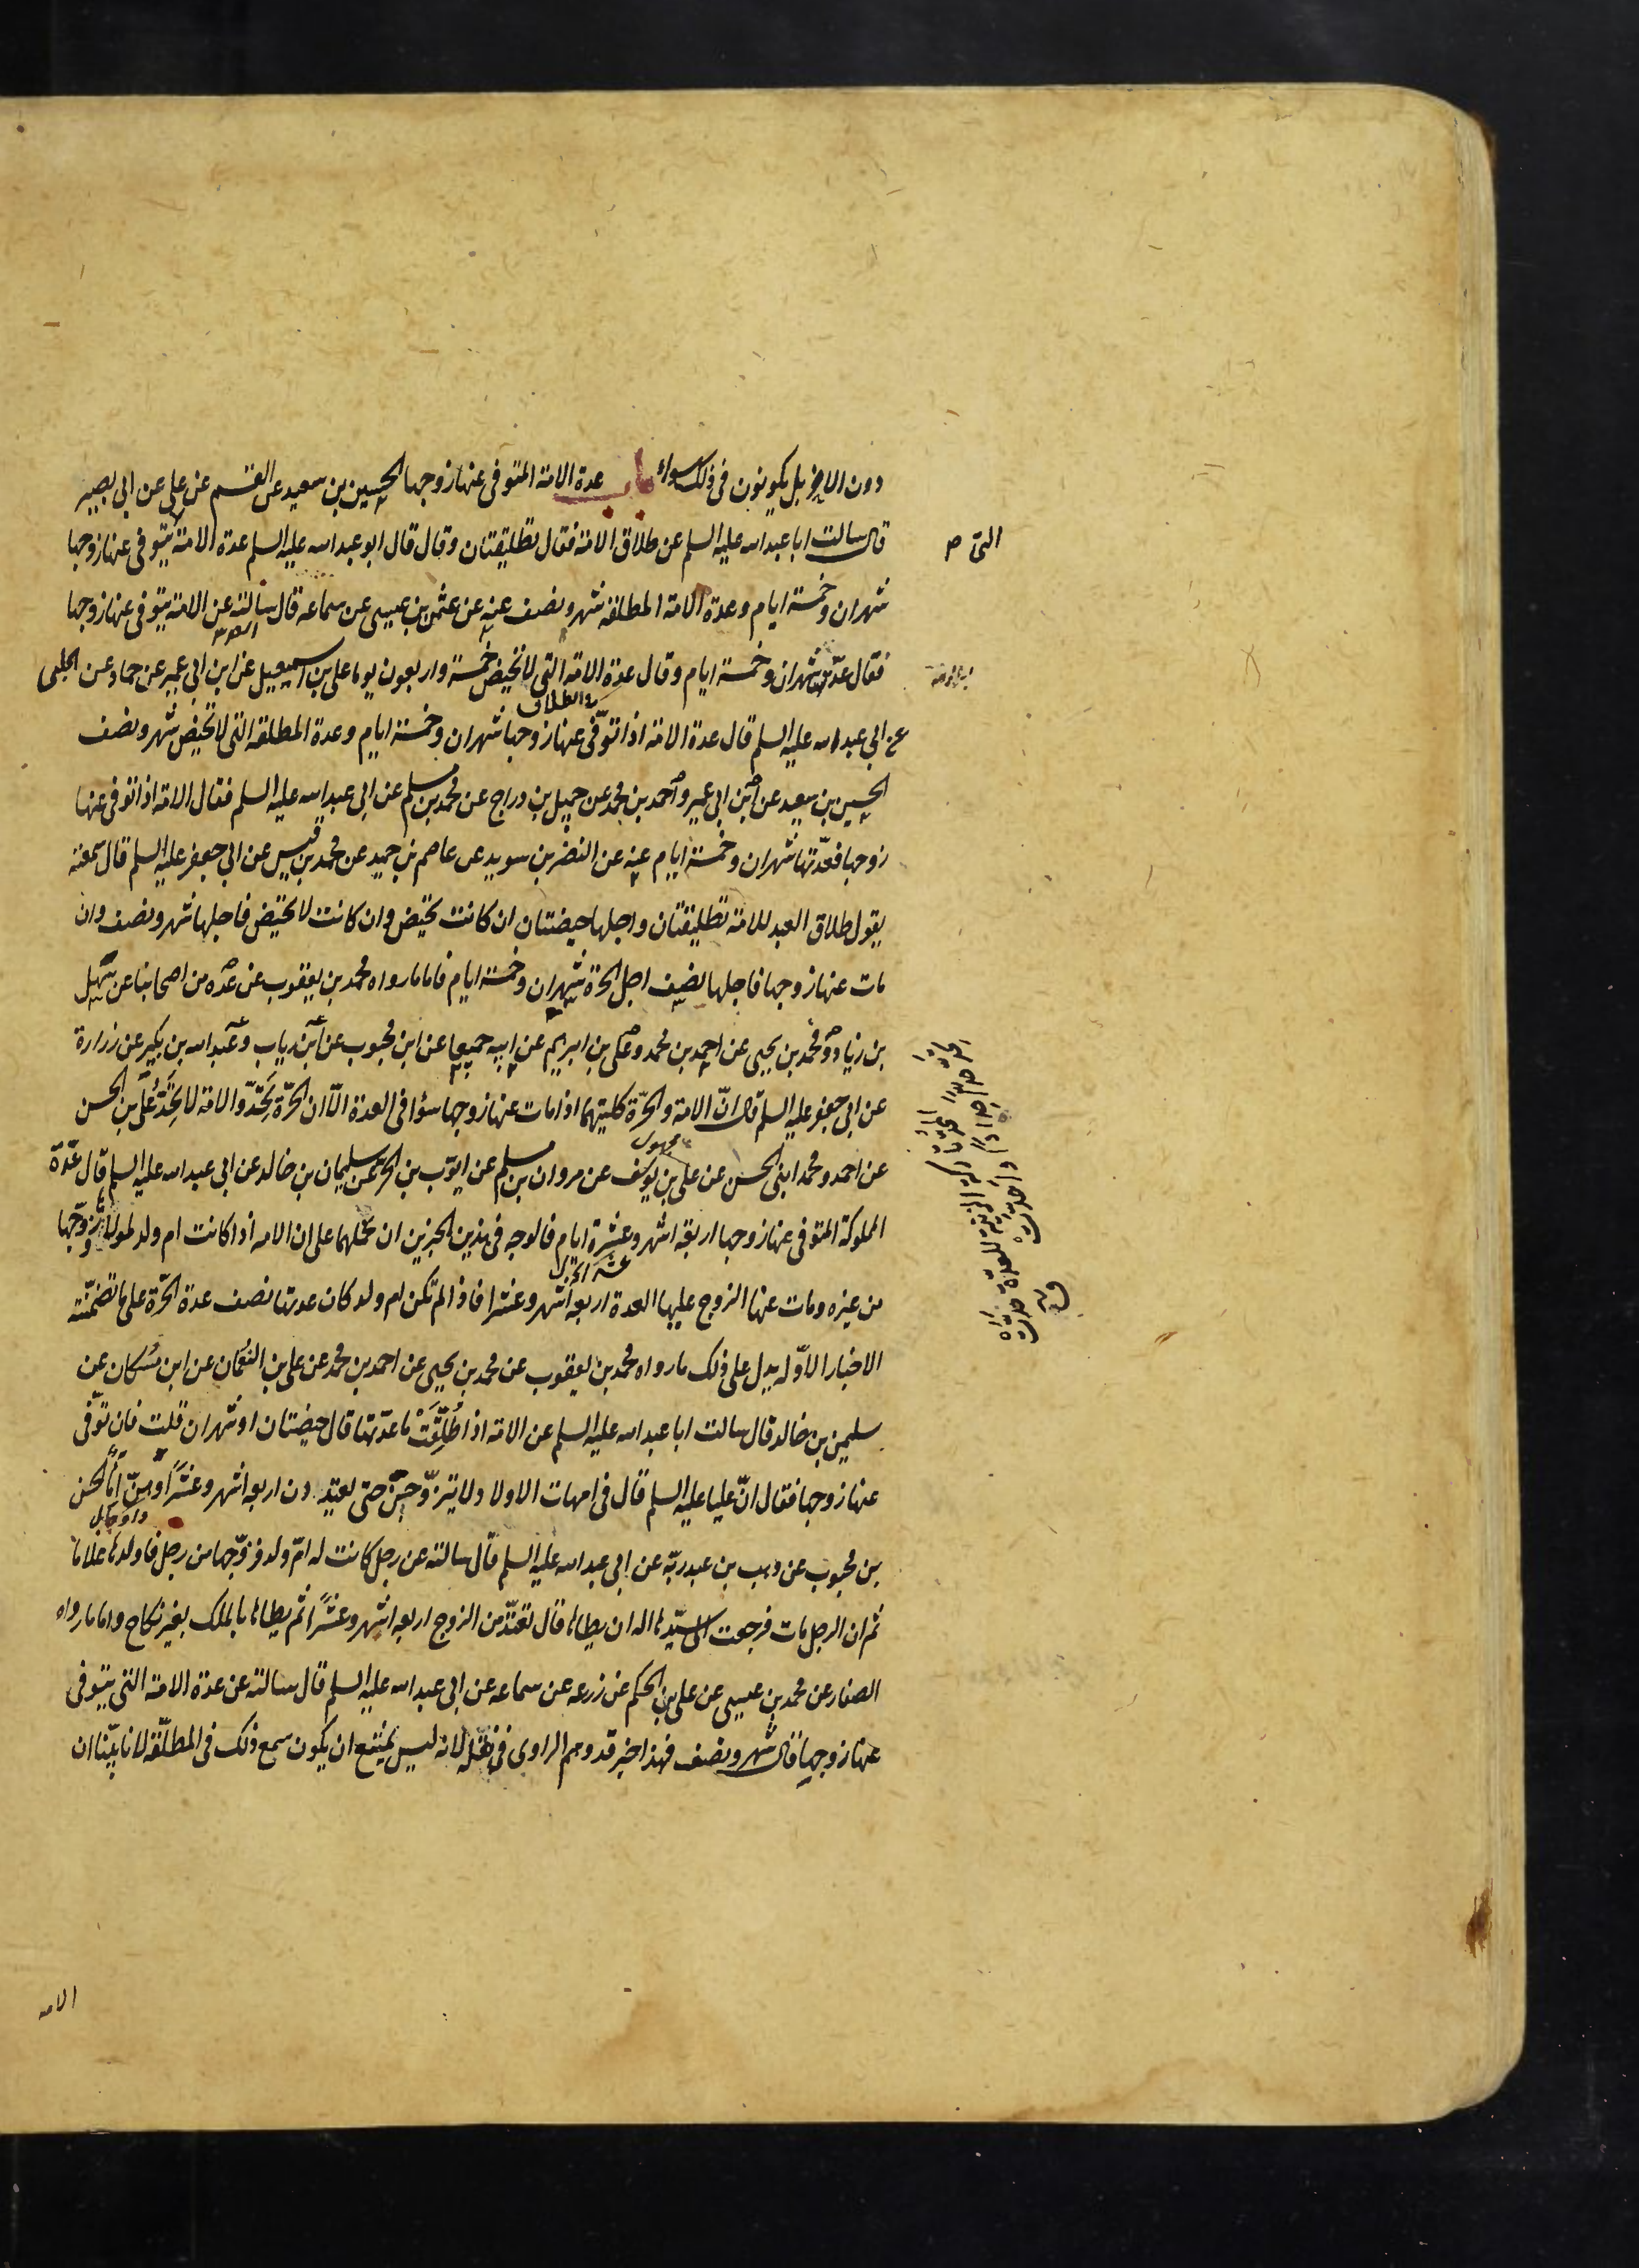 دون الاخر بل يكونون فى ذلك سواء باب عدة الامة المتوفى عنها زوجها الحسين بن سعيد عن القسم عن على عن ابى بصير
قال سالت ابا عبد الله عليه السلم عن طلاق الامة فقال تطليقتان وقال قال ابو عبد الله عليه السلم عدة الامة يتوفى عنها زوجها
التى ص
شهران وخمسة ايام وعدة الامة المطلقة شهر ونصف عنه عن عثمن بن عيسى عن سماعه قال سالته عن الامة يتوفى عنها زوجها
فقال عدتها شهران وخمسة ايام وقال عدة الامة التى لا تحيض خمسة واربعون يوما على بن اسمعيل عن ابن ابى عمير عن حماد عن الحلبى
عن ابى عبد الله عليه السلم قال عدة الامة اذا توفى عنها زوجها شهران وخمسة ايام وعدة المطلقة التى لا تحيض شهر ونصف
الحسين بن سعيد عن ابن ابى عمير واحمد بن محمد عن جميل بن دراج عن محمد بن مسلم عن ابى عبد الله عليه السلم فقال الامة اذا توفى عنها
زوجها فعدتها شهران وخمسة ايام عنه عن النضر بن سويد عن عاصم بن حميد عن محمد بن قيس عن ابى جعفر عليه السلم قال سمعته
يقول طلاق العبد للامة تطليقتان واجلها حيضتان ان كانت تحيض وان كانت لا تحيض فاجلها شهر ونصف وان
مات عنها زوجها فاجلها نصف اجل الحرة شهران وخمسة ايام فاما ما رواه محمد بن يعقوب عن عده من اصحابنا عن سهل
بن زياد ومحمد بن يحيى عن احمد بن محمد وعلى بن ابرهيم عن ابيه جميعا عن ابن محبوب عن ابن رياب وعبد الله بن بكير عن زرارة
عن ابى جعفر عليه السلم قال انّ الامة والحرّة كلتيهما اذا مات عنها زوجها سواء فى العدة الّا ان الحرّة تحدّ والامة لا تحدّ على بن الحسن
عن احمد ومحمد ابنى الحسن عن على بن يوسف عن مروان بن مسلم عن ايوب بن الحر عن سليمان بن خالد عن ابى عبد الله عليه السلم قال عدّة
المملوكة المتوفى عنها زوجها اربعة اشهر وعشرة ايام فالوجه فى هذين الخبرين ان نحملهما على ان الامه اذا كانت ام ولد لمولاها زوجها
من غيره ومات عنها الزوج عليها العدة اربعه اشهر وعشرا فاذا لم تكن ام ولد كان عدتها نصف عدة الحرّة على ما تضمنته
الاخبار الاوّله يدل على ذلك ما رواه محمد بن يعقوب عن محمد بن يحيى عن احمد بن محمد عن على بن النعمان عن ابن مسكان عن
سليمن بن خالد قال سالت ابا عبد الله عليه السلم عن الامة اذا طُلّقَتْ ما عدتها قال حيضتان او شهران قلت فان توفى
عنها زوجها فقال انّ عليا عليه السلم قال فى امهات الاولاد لا يتزوجن حتى يعتددن اربعه اشهر وعشرا وهنّ اماء الحسن
بن محبوب عن وهب بن عبد ربّه عن ابى عبد الله عليه السلم قال سالته عن رجل كانت له امّ ولد فزوّجها من رجل فاولدها غلاما
ثم ان الرجل مات فرجعت الى سيّدها اله ان يطاها قال تعتدّ من الزوج اربعه اشهر وعشرًا ثم يطاها بالملك بغير نكاح واما ما رواه
الصفار عن محمد بن عيسى عن على بن الحكم عن زرعه عن سماعه عن ابى عبد الله عليه السلم قال سالته عن عدة الامة التى يتوفى
عنها زوجها قال شهر ونصف فهذا خبر قد وهم الراوى فى نقله لانه ليس يمتنع ان يكون سمع ذلك فى المطلقة لانا بيّنا ان
الامه